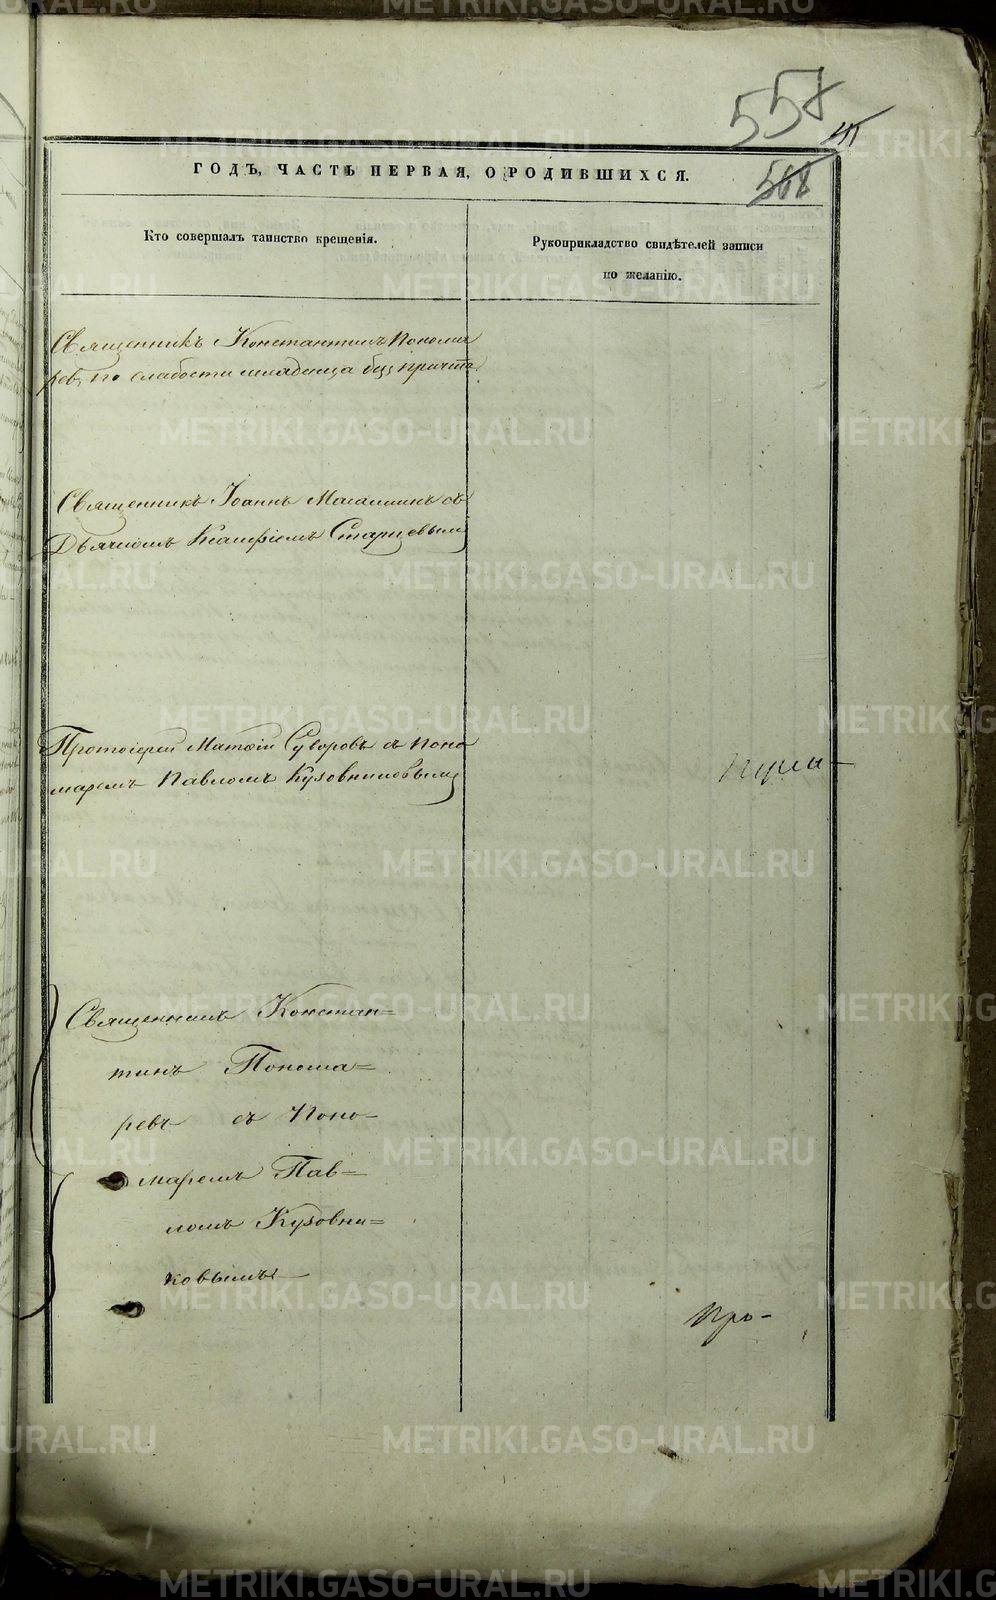 558
568
ГОДЪ, ЧАСТЬ ПЕРВАЯ, О РОДИВШИХСЯ.
Кто совершалъ таинство крещенія.
Рукоприкладство свидѣтелей записи
по желанію.
Священникъ Константинъ Понома
ревъ по слабости младенца безъ причта
Священникъ Іоаннъ съ
Дьячкомъ Старцевымъ
Протоіерей Матѳій Суворовъ съ Поно
маремъ Павломъ Кузовниковымъ
Священникъ Констан=
тинъ Понома=
ревъ съ Поно-
маремъ Пав=
ломъ Кузовни=
ковымъ
Про-
METRIKI.GASO-URAL.RU